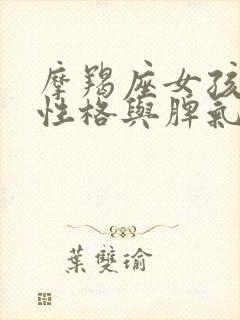 摩羯座女孩
性格與脾氣
葉雙瑜